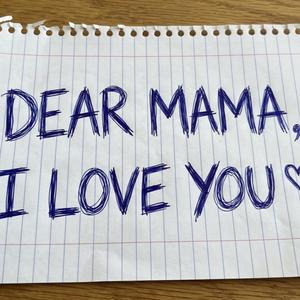 DEAR MAMA,
I LOVE YOU♡